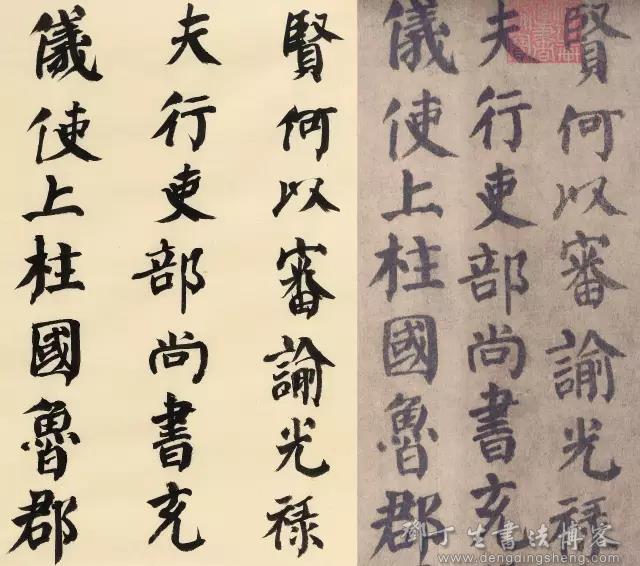 賢何以審諭光禄
夫行吏部尚書充
儀使上柱國魯郡
賢何以審諭光禄
夫行吏部尚書充
儀使上柱國魯郡
鄧丁生書法博客
www.dengdingsheng.com